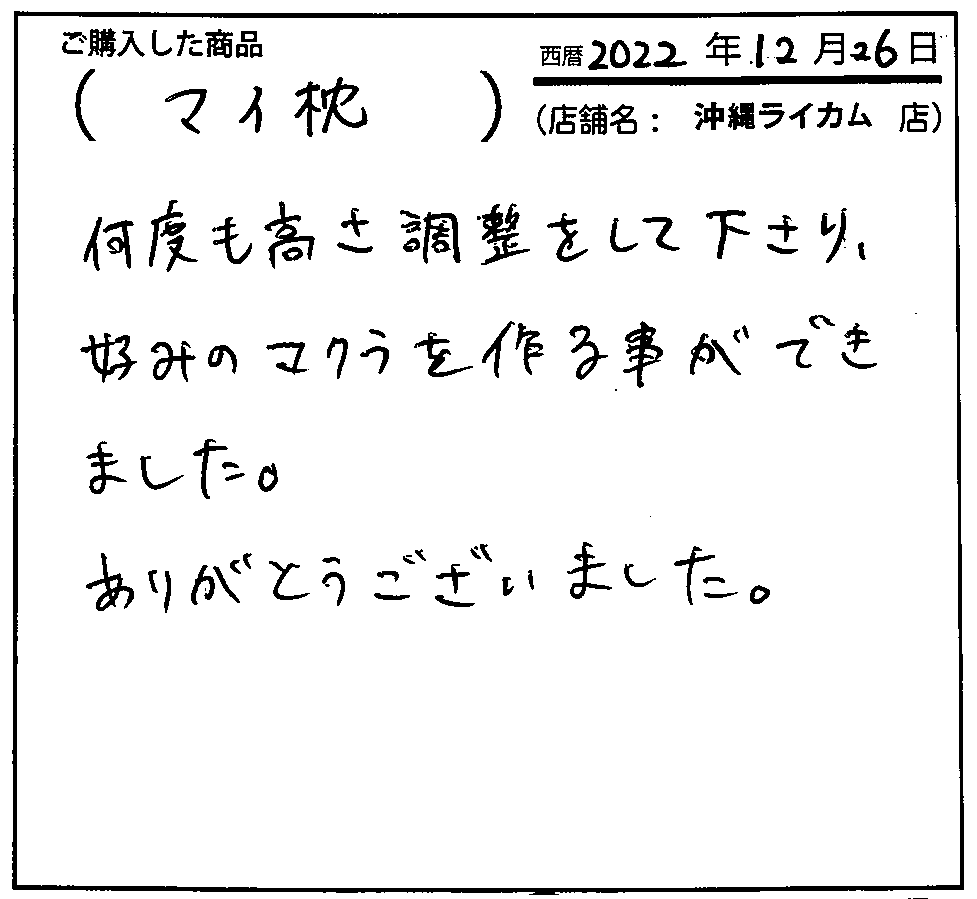 ご購入した商品
(マイ枕)
西暦2022年12月26日
(店舗名：沖縄ライカム 店)
何度も高さ調整をして下さり、
好みのマクラを作る事ができ
ました。
ありがとうございました。